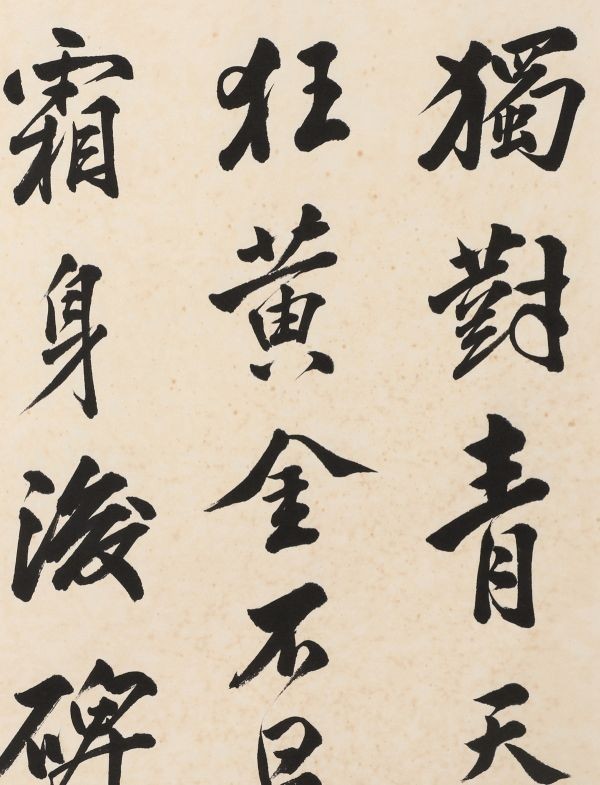 獨對青天
狂黄金不
霜身後碑